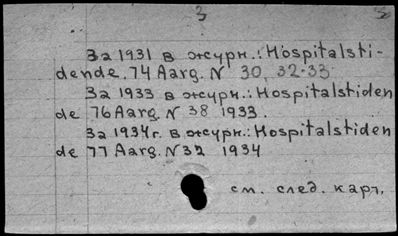 3
За 1931 в журн.: Hospitalsti-
dende. 74 Aarg. N 30, 32-33.
За 1933 в журн.: Hospitalstiden
de 76 Aarg. N 38 1933.
За 1934г. в журн.: Hospitalstiden
de 77 Aarg. N 32 1934
см. след. карт.